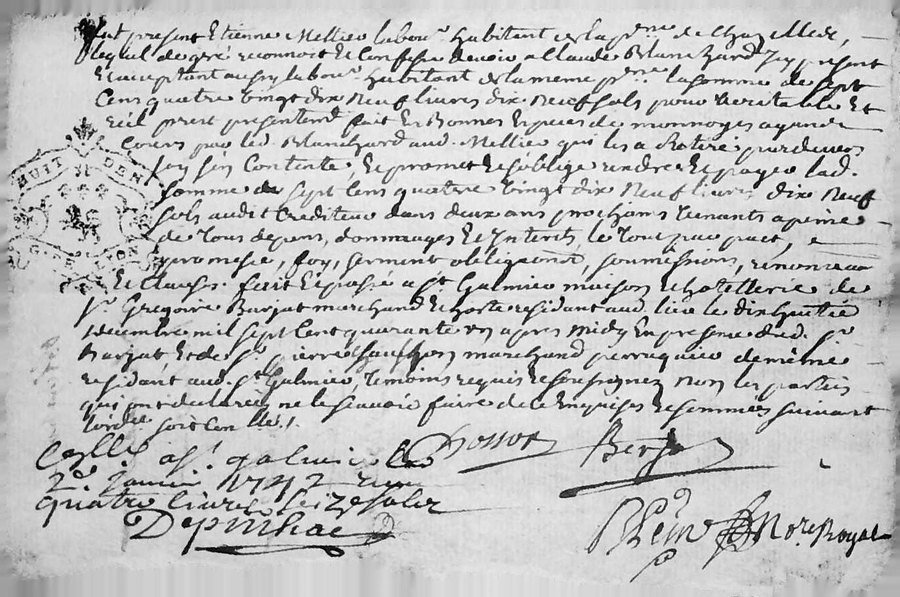 fut present Etienne Mellier labou.r habitant de la p.sse de Chazelles,
lequel de gré reconnoit et confesse devoir a Claude Blanchard Icy present
et acceptant aussy labou.r habitant de la meme p.sse la somme de sept
cens quatre vingt dix neuf livres dix neuf sols pour veritable et
reel prest presentement fait en bonnes especes de monnoyes ayant
cours par led. Blanchard aud. Mellier qui les a retiré pardevers
soy sen contente, et promet et soblige rendre et payer lad.
somme de sept cens quatre vingt dix neuf livres dix neuf
sols audit crediteur dans deux ans prochains venants a peine
de tous depens, dommages et interets, le tout par pact,
promesse, foy, serment obligations, soumissions, renonciaōn
et clauses. fait et passé a S.t Galmier maison et hotellerie de
S.r Gregoire Barjat marchand et hoste residant aud. lieu le dixhuitie
decembre mil sept cent quarante un apres midy en presence dud. S.r
Barjat et de S.r pierre marchand perruquier demême
residant aud. S.t Galmier, temoins requis et soussignez non les parties
qui ont declarées ne le scavoir faire de ce enquises et sommées suivant
lordce soit Con.llé
HUIT DEN
GEN LYON
Con.llé a S.t galmier le
2.e janvier 1742 reçu
quatre livres seize sols
Depinhac
Barjat
No.re Royal